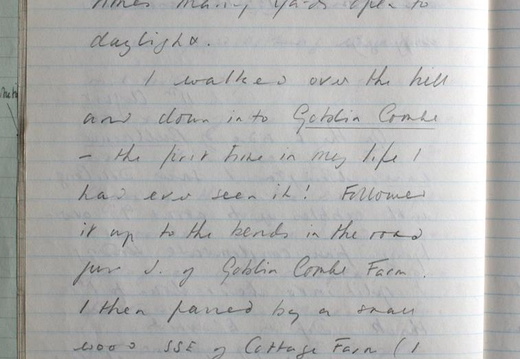 times many yards open to
daylight.
I walked over the hill
and down into Goblin Combe
– the first time in my life I
had ever seen it! Followed
it up to the bends in the road
just S. of Goblin Combe Farm.
I then passed by a small
wood SSE of Cottage Farm (I